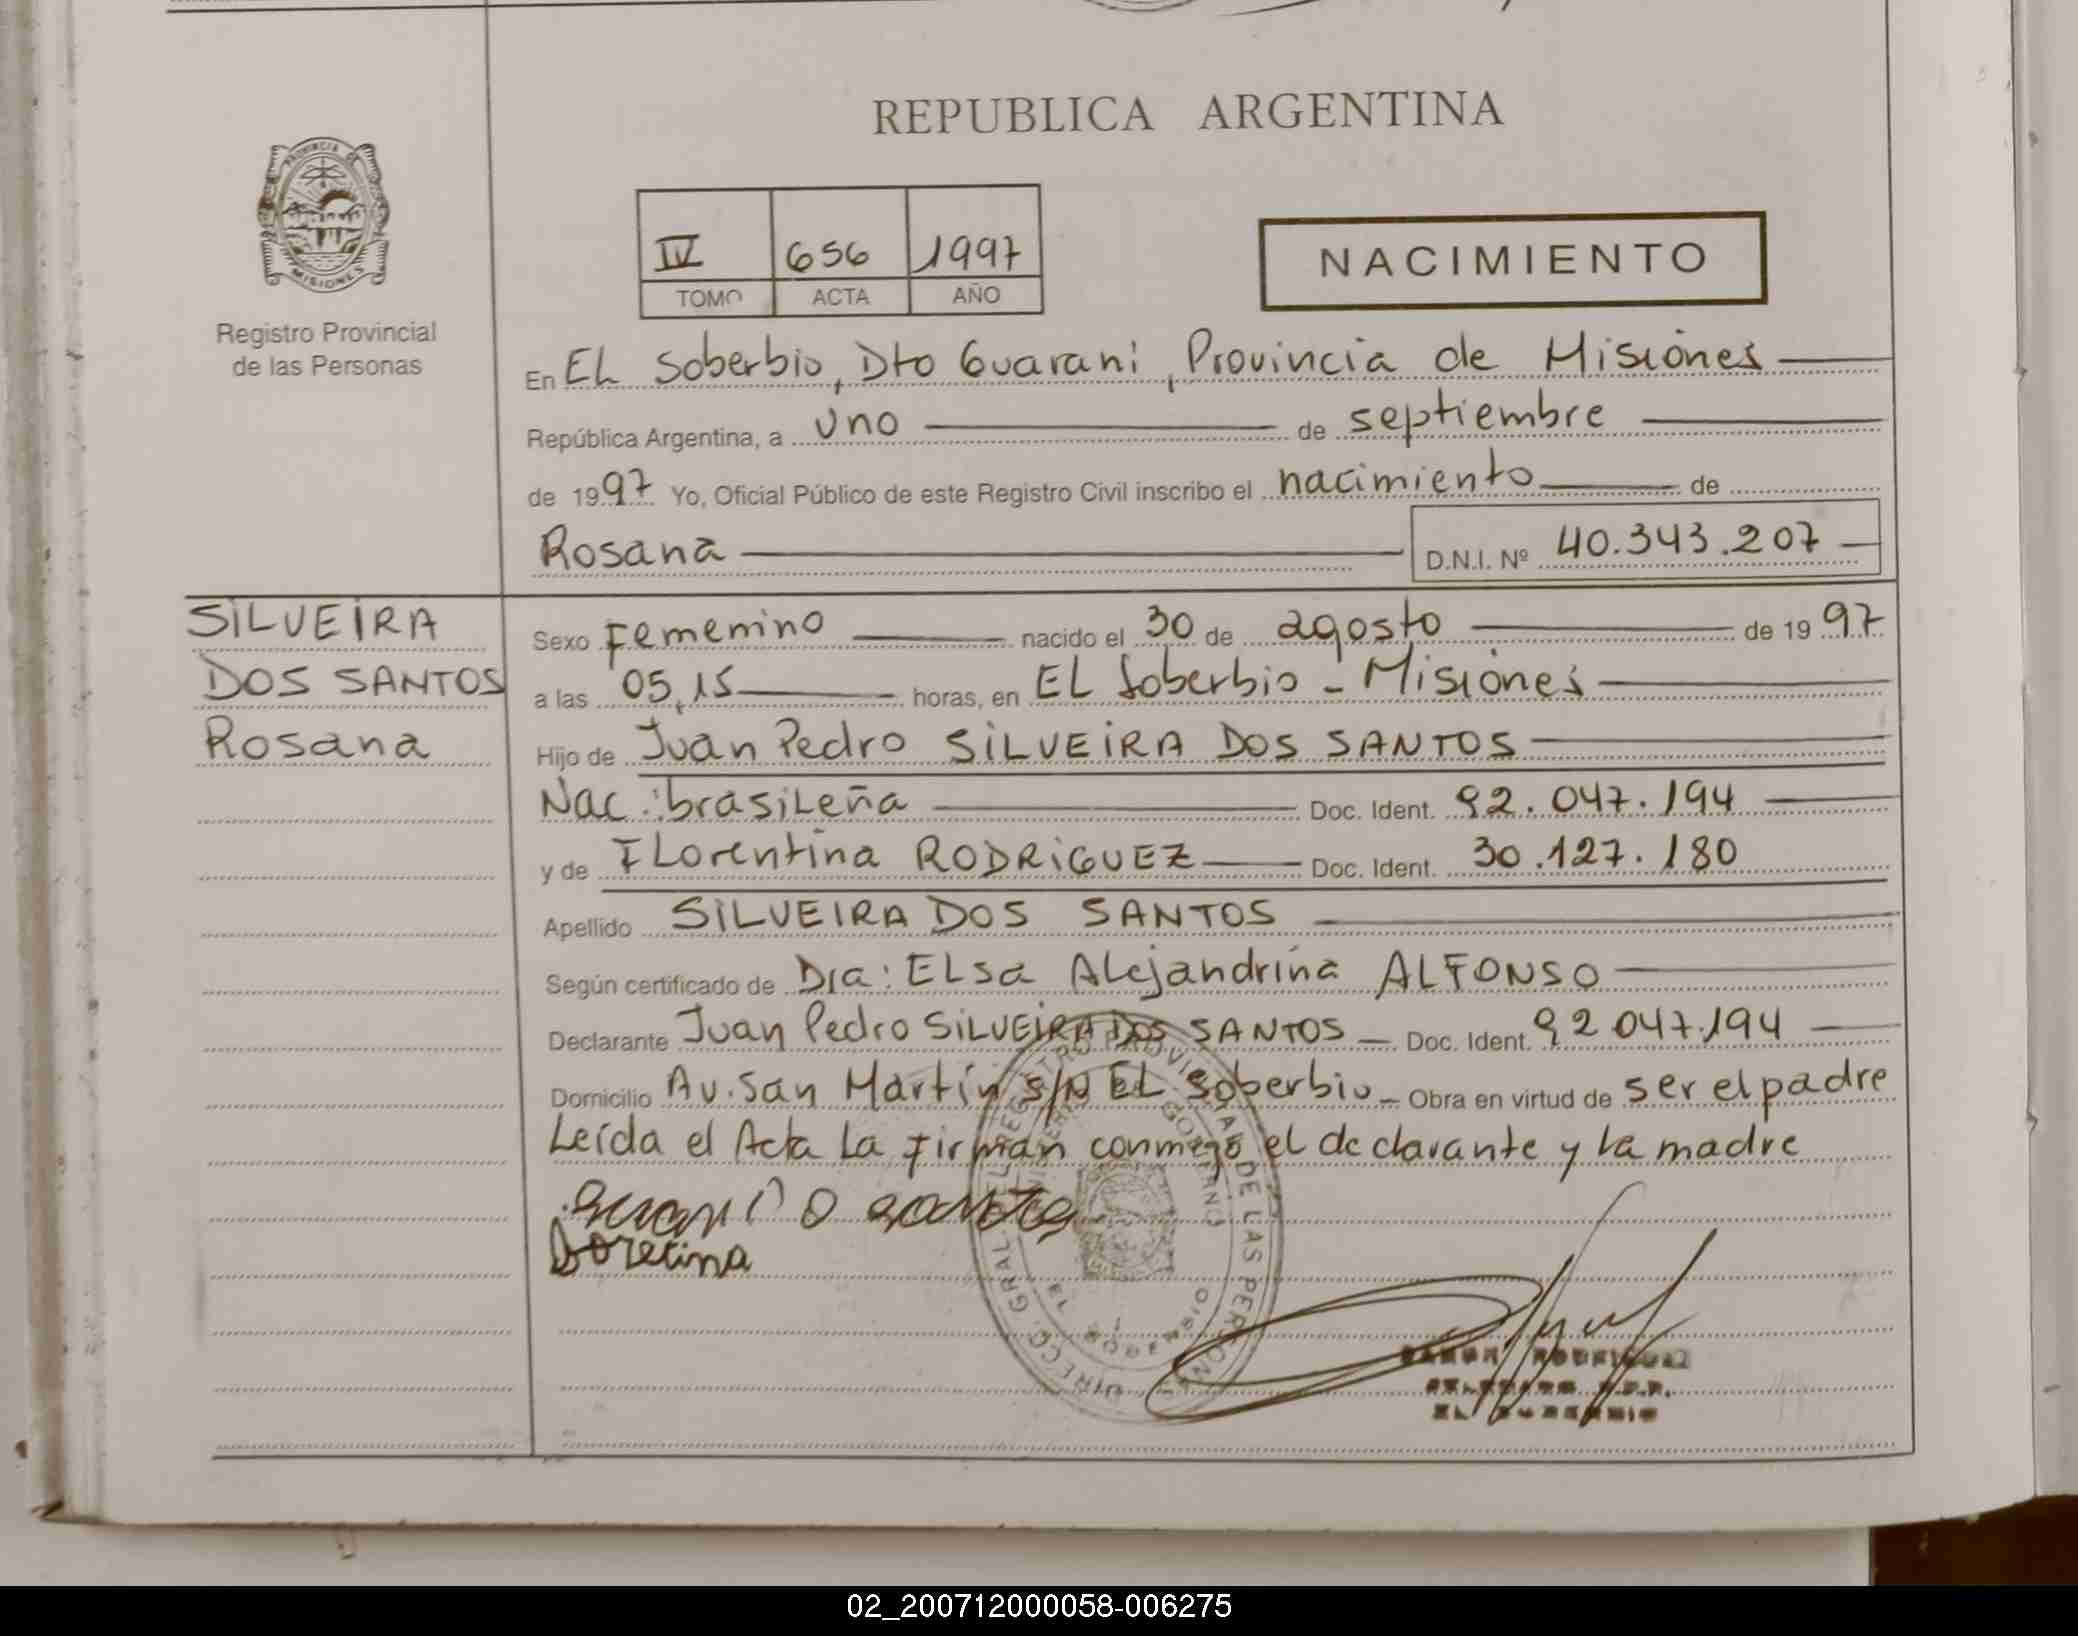 REPUBLICA ARGENTINA
PROVINCIA DE
MISIONES
Registro Provincial
de las Personas
IV 656 1997
TOMO ACTA AÑO
NACIMIENTO
En EL Soberbio, Dto Guarani, Provincia de Misiones
República Argentina, a uno de septiembre
de 1997 Yo, Oficial Público de este Registro Civil inscribo el nacimiento de
Rosana D.N.I. Nº 40.343.207
SILVEIRA
DOS SANTOS
Rosana
Sexo Femenino nacido el 30 de agosto de 1997
a las 05,15 horas, en EL Soberbio - Misiones
Hijo de Juan Pedro SILVEIRA DOS SANTOS
Nac: brasileña Doc. Ident. 92.047.194
y de Florentina RODRIGUEZ Doc. Ident. 30.127.180
Apellido SILVEIRA DOS SANTOS
Según certificado de Dra: ELsa Alejandrina ALFONSO
Declarante Juan Pedro SILVEIRA DOS SANTOS Doc. Ident. 92 047.194
Domicilio Av. San Martín s/N EL Soberbio Obra en virtud de ser el padre
Leída el Acta la firman conmigo el declarante y la madre
DIRECC. GRAL. DE LAS
GOBIERNO
EL SOBERBIO
RODRIGUEZ
EL SOBERBIO
02_200712000058-006275